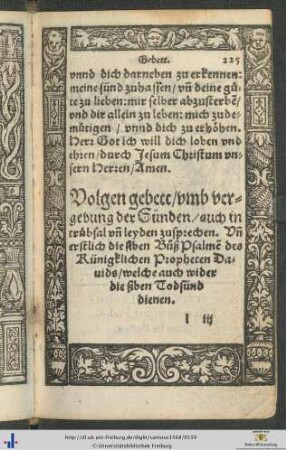 Gebett. 225
vnnd dich darneben zu erkennen:
meine sünd zuhassen/ vñ deine gü-
te zu lieben: mir selber abzusterbē/
vnd dir allein zu leben: mich zude-
mütigen / vnnd dich zu erhöhen.
Herr Got ich will dich loben vnd
ehren/durch Jesum Christum vn-
sern Herren/Amen.
Volgen gebett/vmb ver-
gebung der Sünden/auch in
trübsal vñ leyden zusprechen. Vñ
erstlich die siben Bůß Psalmē des
Künigklichen Propheten Da-
uids/welche auch wider
die siben Todsünd
dienen.
l iij
http://dl.ub.uni-freiburg.de/diglit/canisius1568/0559
© Universitätsbibliothek Freiburg